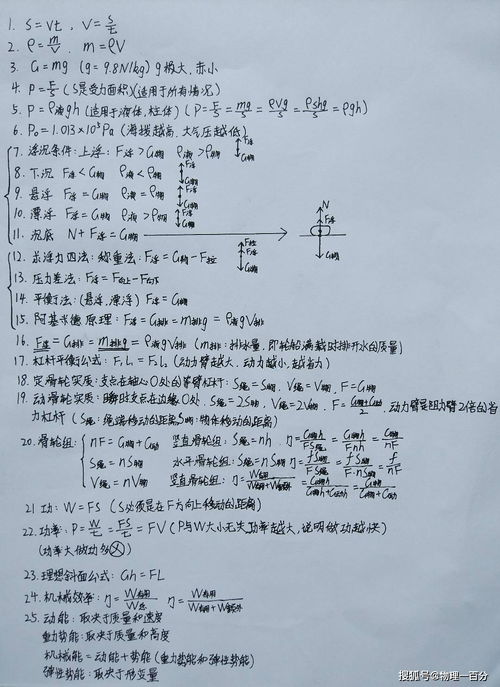 1. S=Vt, V=S/t
2. ρ=m/V, m=ρV
3. G=mg (g=9.8N/kg) g极大,赤小
4. P=F/S (S是受力面积)(适用于所有情况)
5. P=ρ液gh (适用于液体,柱体) (P=F/S=mg/S=ρVg/S=ρShg/S=ρgh)
6. P₀=1.013×10⁵Pa (海拔越高,大气压越低)
7. 浮沉条件:上浮:F浮>G物 ρ液>ρ物 F浮 G物
8. 下沉 F浮<G物 ρ液<ρ物 F浮 G物
9. 悬浮 F浮=G物 ρ液=ρ物 F浮 G物
10. 漂浮 F浮=G物 ρ液>ρ物 F浮 G物
11. 沉底 N+F浮=G物 N F浮 G物
12. 求浮力四法:称重法:F浮=G物-F拉 F拉 F浮 G物
13. 压力差法:F浮=F向上-F向下
14. 平衡法:(悬浮,漂浮) F浮=G物
15. 阿基米德原理:F浮=G排=m排g=ρ液gV排
16. F浮=G排=m排g=ρ液gV排 (m排:排水量,即轮船满载时排开水的质量)
17. 杠杆平衡公式:F₁L₁=F₂L₂ (动力臂越大,动力越小,越省力)
18. 定滑轮实质:支点在轴心O处的等臂杠杆:S绳=S物,V绳=V物,F=G物
19. 动滑轮实质:瞬时支点在边缘O处,S绳=2S物,V绳=2V物,F=G物+G动/2,动力臂是阻力臂2倍的省
力杠杆 (S绳:绳端移动的距离,S物:物体移动的距离)
20. 滑轮组: nF=G物+G动 竖直滑轮组:S绳=nh, η=G物h/FS绳=G物h/Fnh=G物/nF
S绳=nS物 水平滑轮组:S绳=nS物 η=fS物/FS绳=fS物/F·nS物=f/nF
V绳=nV物 竖直滑轮组:η=W有用/W有用+W额外=G物h/G物h+G动h=G物/G物+G动
21 功:W=FS (S必须是在F方向上移动的距离)
22. 功率:P=W/t=FS/t=FV (P与W大小无关,功率越大,说明做功越快)
(功率大做功多⊗)
23. 理想斜面公式:Gh=FL
24. 机械效率:η=W有用/W总 η=W有用/W有用+W额外
25. 动能:取决于质量和速度
重力势能:取决于质量和高度
机械能=动能+势能(重力势能和弹性势能)
弹性势能:取决于形变量
搜狐号@物理一百分